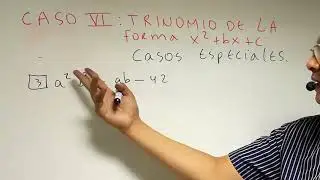 CASO VI: TRINOMIO DE LA
forma x²+bx+c
CASOS ESPECIALES.
3 a² ab-42